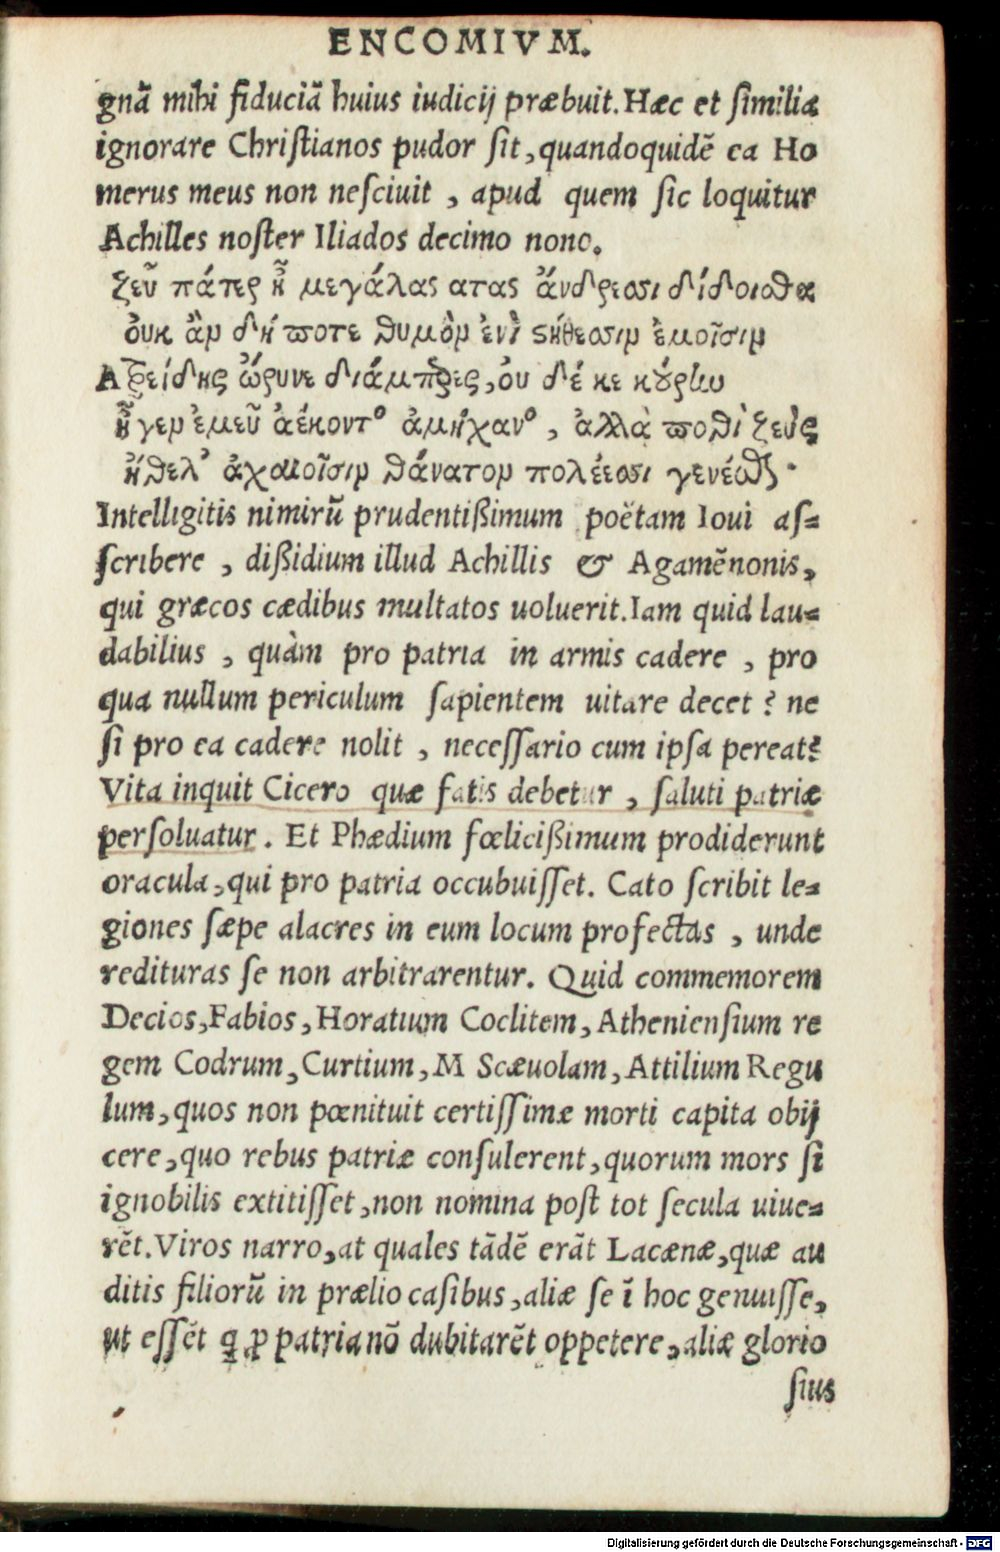 ENCOMIVM.
gnā mihi fiduciā huius iudicij præbuit. Hæc et similia
ignorare Christianos pudor sit, quandoquidē ea Ho
merus meus non nesciuit, apud quem sic loquitur
Achilles noster Iliados decimo nono.
ζεῦ πάτερ ἦ μεγάλας ατας ἄνδρεσσι δίδοισθα
ὀυκ ἂν δή ποτε θυμὸν ἐνὶ στήθεσσιν ἐμοῖσιν
Ατρείδης ὤρυνε διάμπερες, ὀυ δέ κε κούρην
ἦγεν ἐμεῦ ἀέκοντος ἀμήχανος, ἀλλὰ ποθὶ ζεὺς
ἤθελ' ἀχαιοῖσιν θάνατον πολέεσσι γενέσθαι.
Intelligitis nimirū prudentißimum poëtam Ioui as=
scribere, dißidium illud Achillis & Agamēnonis,
qui græcos cædibus multatos uoluerit. Iam quid lau=
dabilius, quàm pro patria in armis cadere, pro
qua nullum periculum sapientem uitare decet? ne
si pro ea cadere nolit, necessario cum ipsa pereat?
Vita inquit Cicero quæ fatis debetur, saluti patriæ
persoluatur. Et Phædium fœlicißimum prodiderunt
oracula, qui pro patria occubuisset. Cato scribit le=
giones sæpe alacres in eum locum profectas, unde
redituras se non arbitrarentur. Quid commemorem
Decios, Fabios, Horatium Coclitem, Atheniensium re
gem Codrum, Curtium, M Scæuolam, Attilium Regu
lum, quos non pœnituit certissimæ morti capita obij
cere, quo rebus patriæ consulerent, quorum mors si
ignobilis extitisset, non nomina post tot secula uiue=
rēt. Viros narro, at quales tādē erāt Lacænæ, quæ au
ditis filiorū in prælio casibus, aliæ se ī hoc genuisse,
ut essēt q̄ ꝓ patria nō dubitarēt oppetere, aliæ glorio
sius
Digitalisierung gefördert durch die Deutsche Forschungsgemeinschaft - DFG